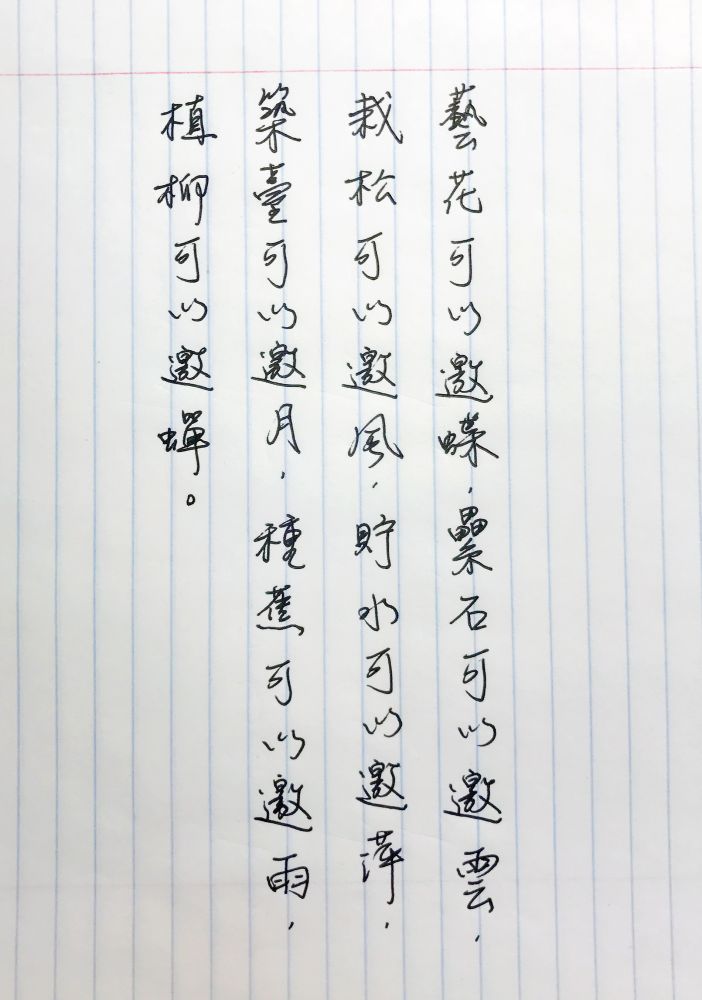 藝花可以邀蝶，壘石可以邀雲，
栽松可以邀風，貯水可以邀萍，
築臺可以邀月，種蕉可以邀雨，
植柳可以邀蟬。